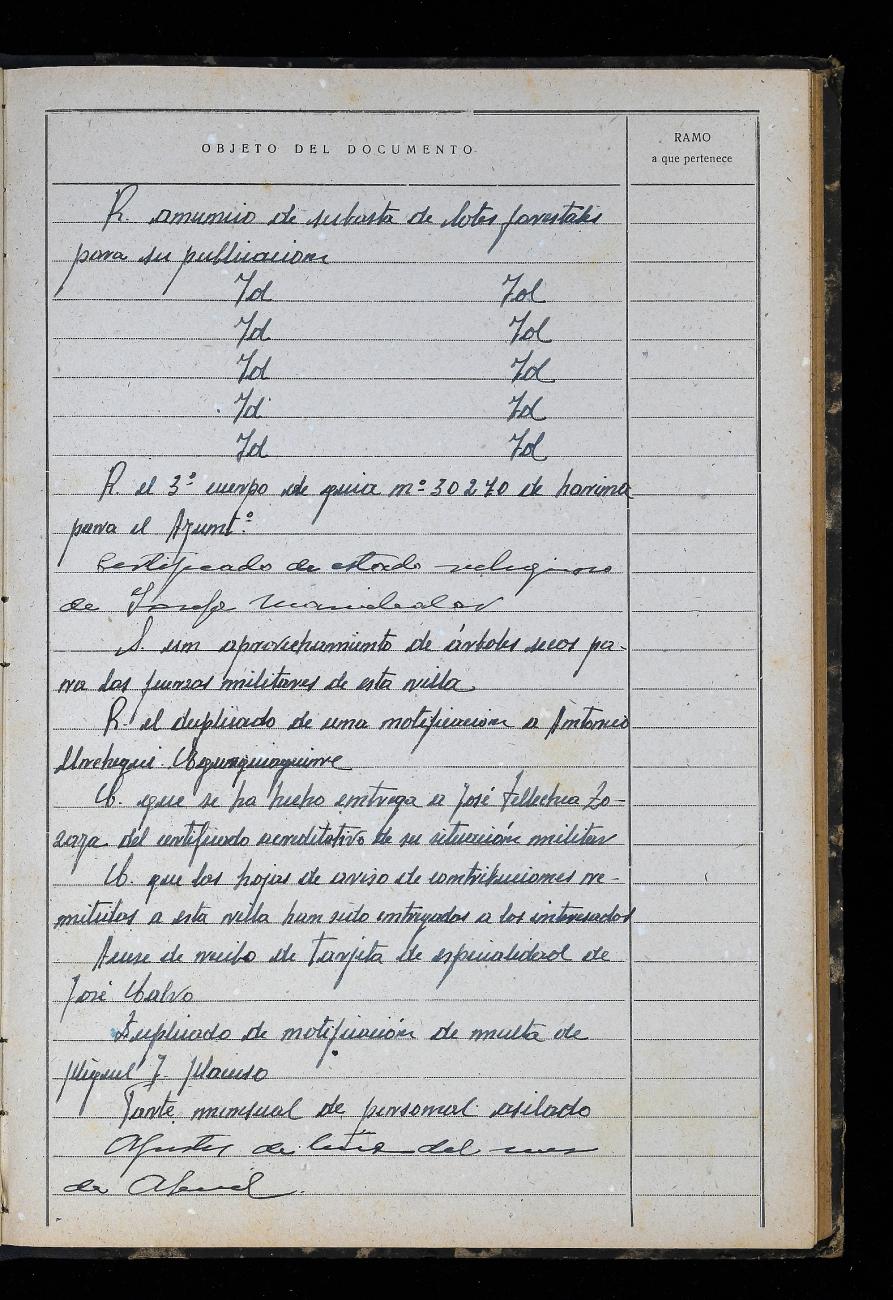 OBJETO DEL DOCUMENTO
RAMO
a que pertenece
R. anuncio de subasta de lotes forestales
para su publicacion
Id Id
Id Id
Id Id
Id Id
Id Id
R. el 3º cuerpo de guia nº 30270 de harina
para el Ayuntº
Certificado de estado religioso
de Josefa
S. un aprovechamiento de árboles secos pa-
ra las fuerzas militares de esta villa
R. el duplicado de una notificacion a Antonio
C. que se ha hecho entrega a José Tellechea Zo-
zaya del certificado acreditativo de su situación militar
C. que las hojas de aviso de contribuciones re-
mitidas a esta villa han sido entregadas a los interesados
Acuse de recibo de tarjeta de especialidad de
José Calvo
Duplicado de notificación de multa de
Miguel J.
Parte mensual de personal asilado
Ajustes de del mes
de Abril.